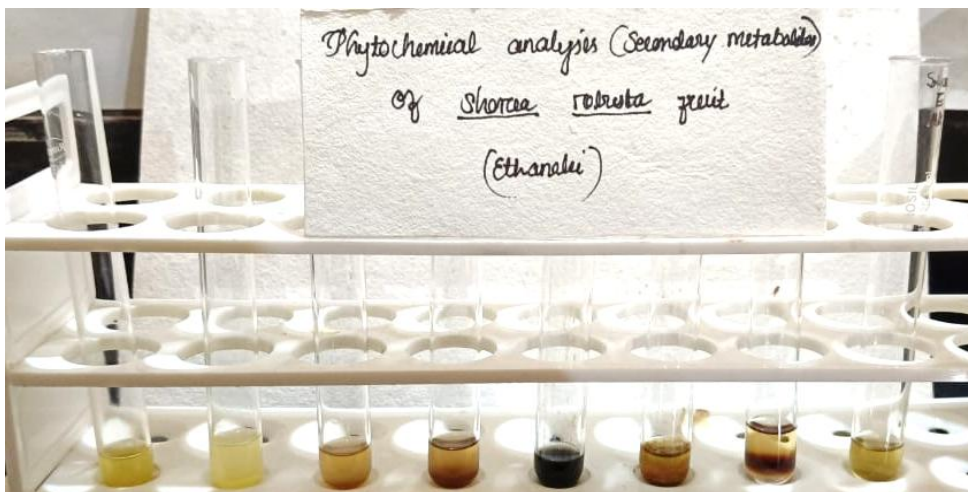 Phytochemical analysis (Secondary metabolites)
Of Shorea robusta fruit
(Ethanolic)